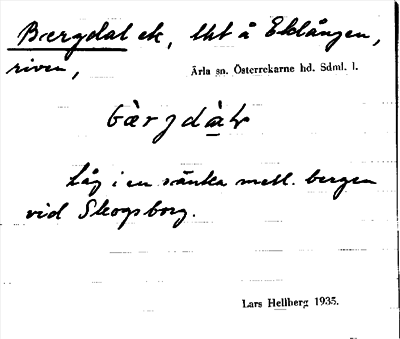 Bergdal ek, tht å Eklången,
riven,
Ärla sn. Österrekarne hd. Sdml. l.
bàrjdàw
Låg i en sänka mell. bergen
vid Skogsborg.
Lars Hellberg 1935.